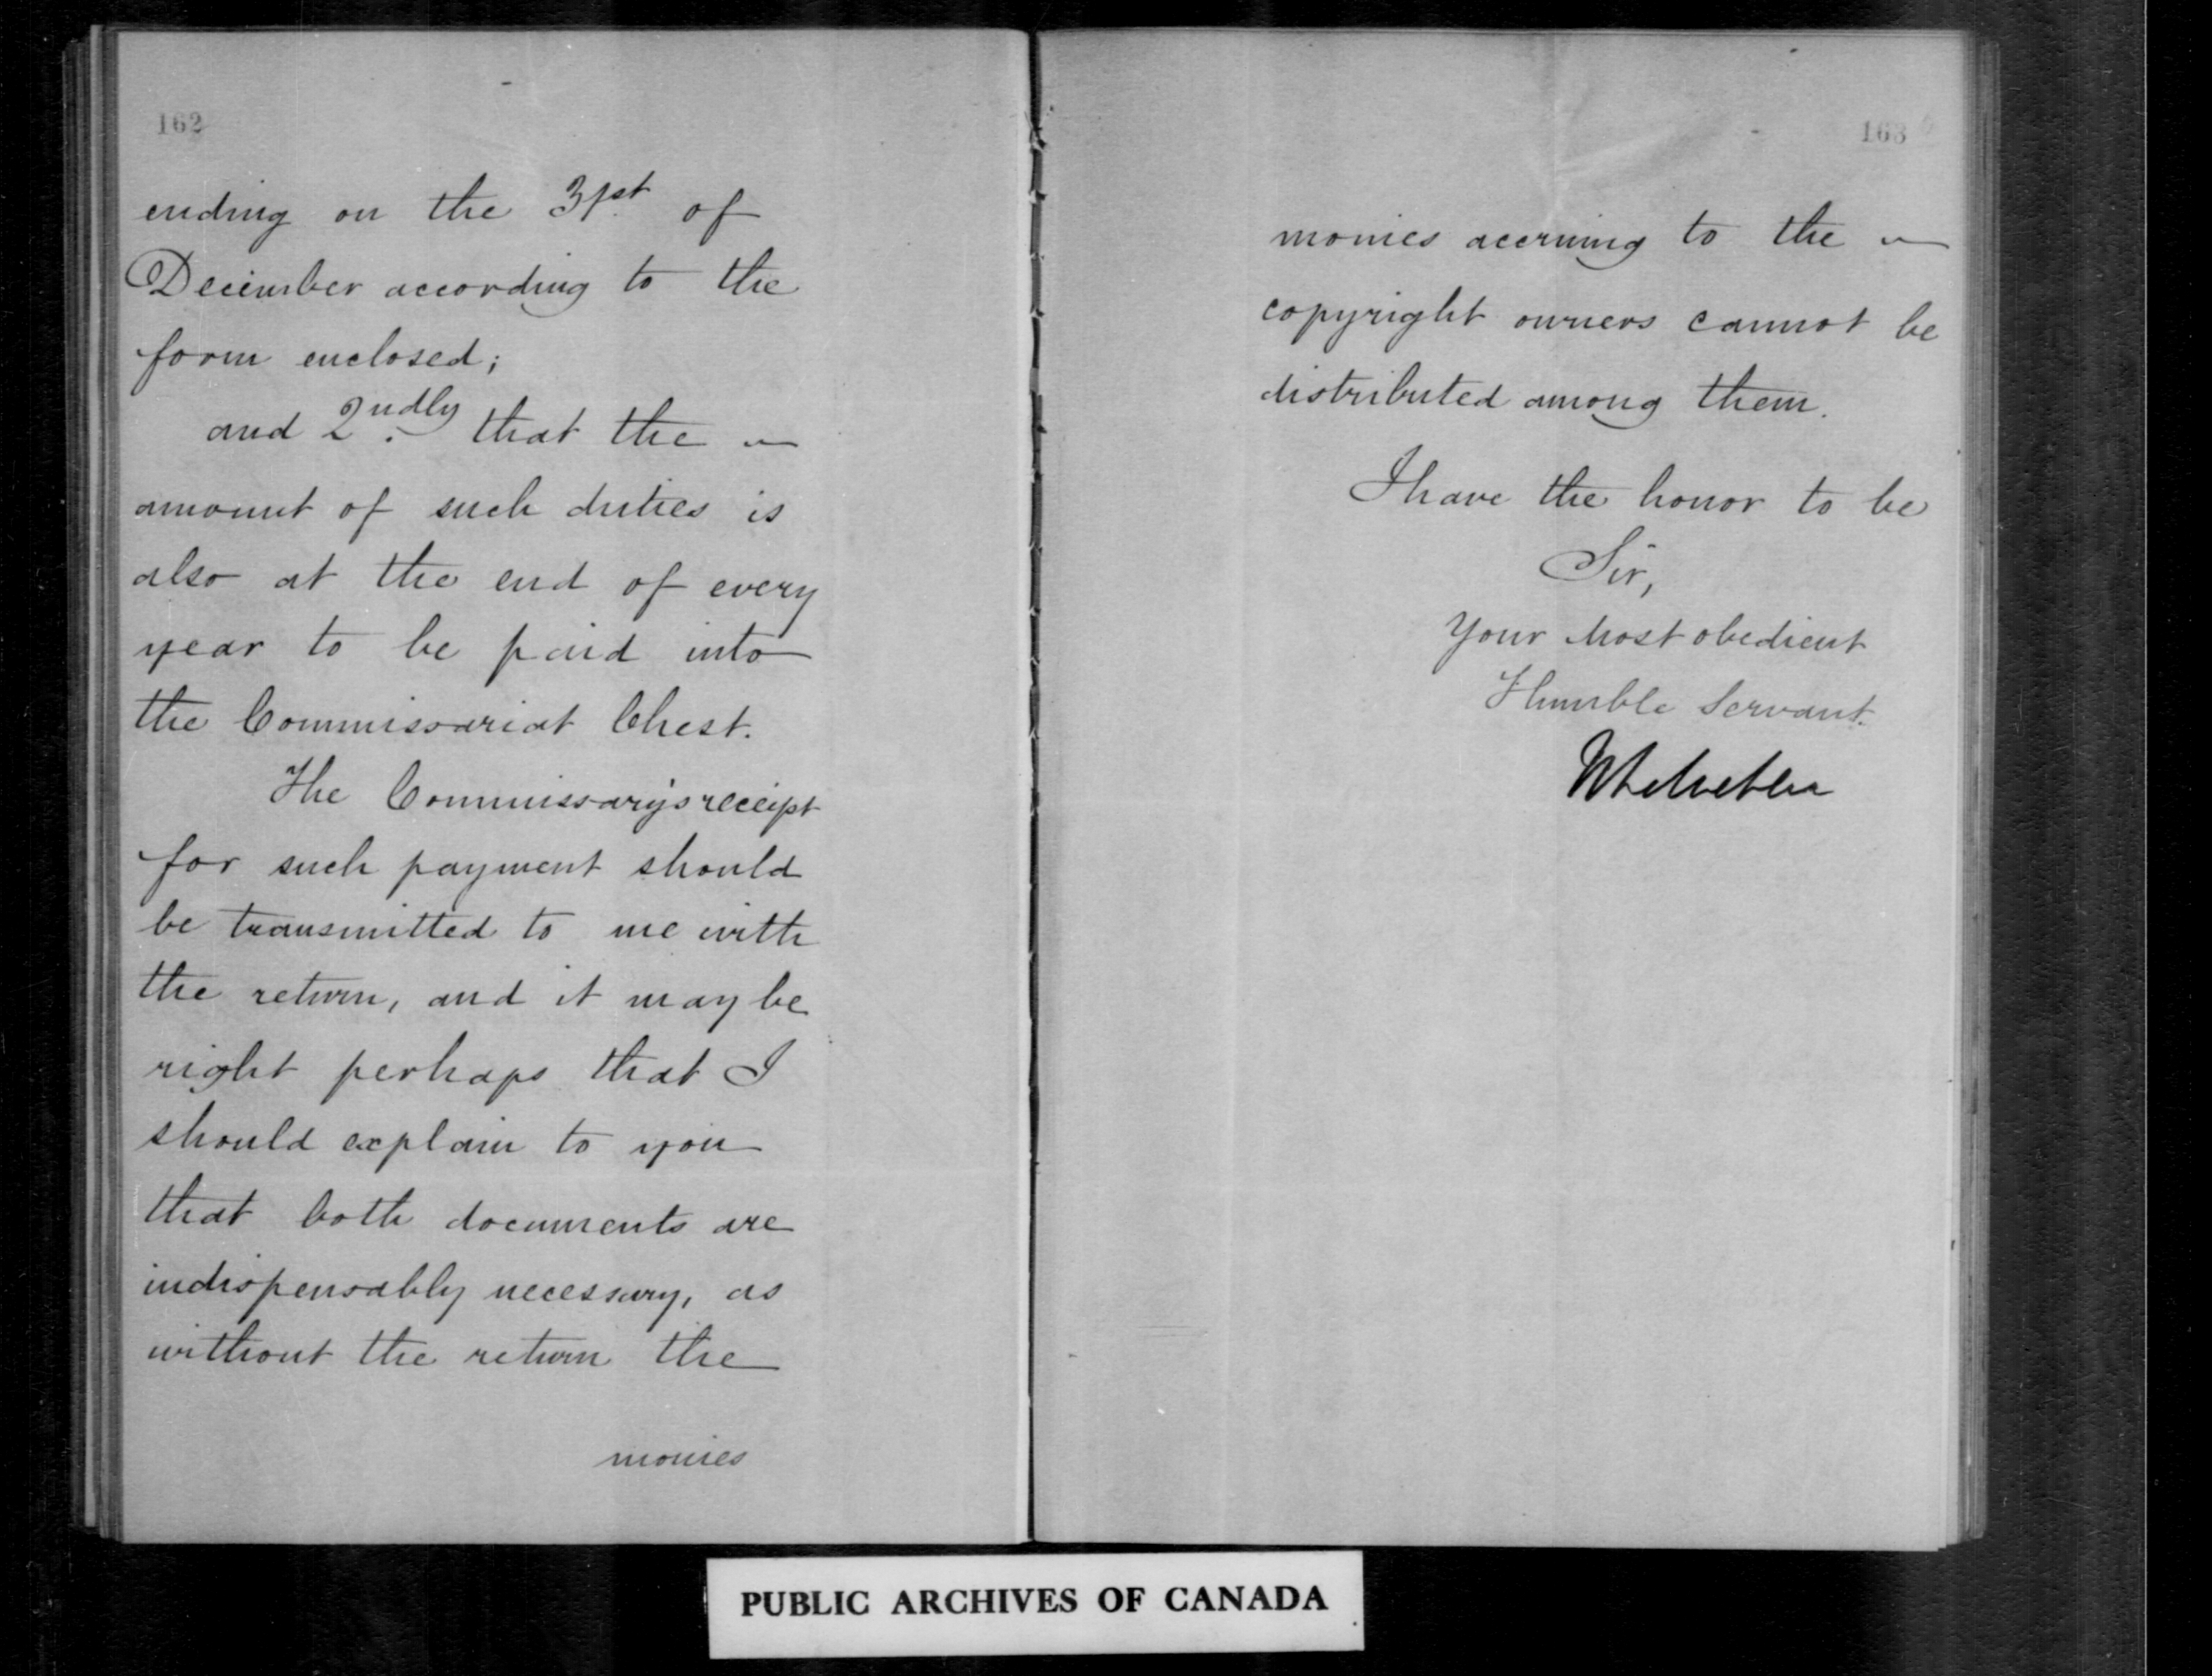 162
ending on the 31st of
December according to the
form enclosed;
and 2ndly that the
amount of such duties is
also at the end of every
year to be paid into
the Commissariat Chest.
The Commissary's receipt
for such payment should
be transmitted to me with
the return, and it may be
right perhaps that I
should explain to you
that both documents are
indispensably necessary, as
without the return the
monies
163
monies accruing to the
copyright owners cannot be
distributed among them.
I have the honor to be
Sir,
Your Most obedient
Humble Servant.
PUBLIC ARCHIVES OF CANADA